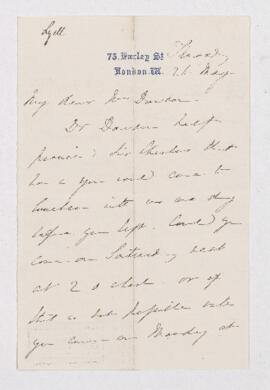 Lyell
73, Harley St
London. W.
Thursday
26 May
My dear Mrs Dawson.
Dr Dawson half
promised Sir Charles that
he & you would come to
luncheon with us one day
before you left. Could you
come on Saturday next
at 2 o'clock. or if
that is not possible
you come on Monday at